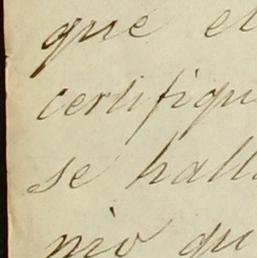 que e
certifiqu
se hall
nio qu